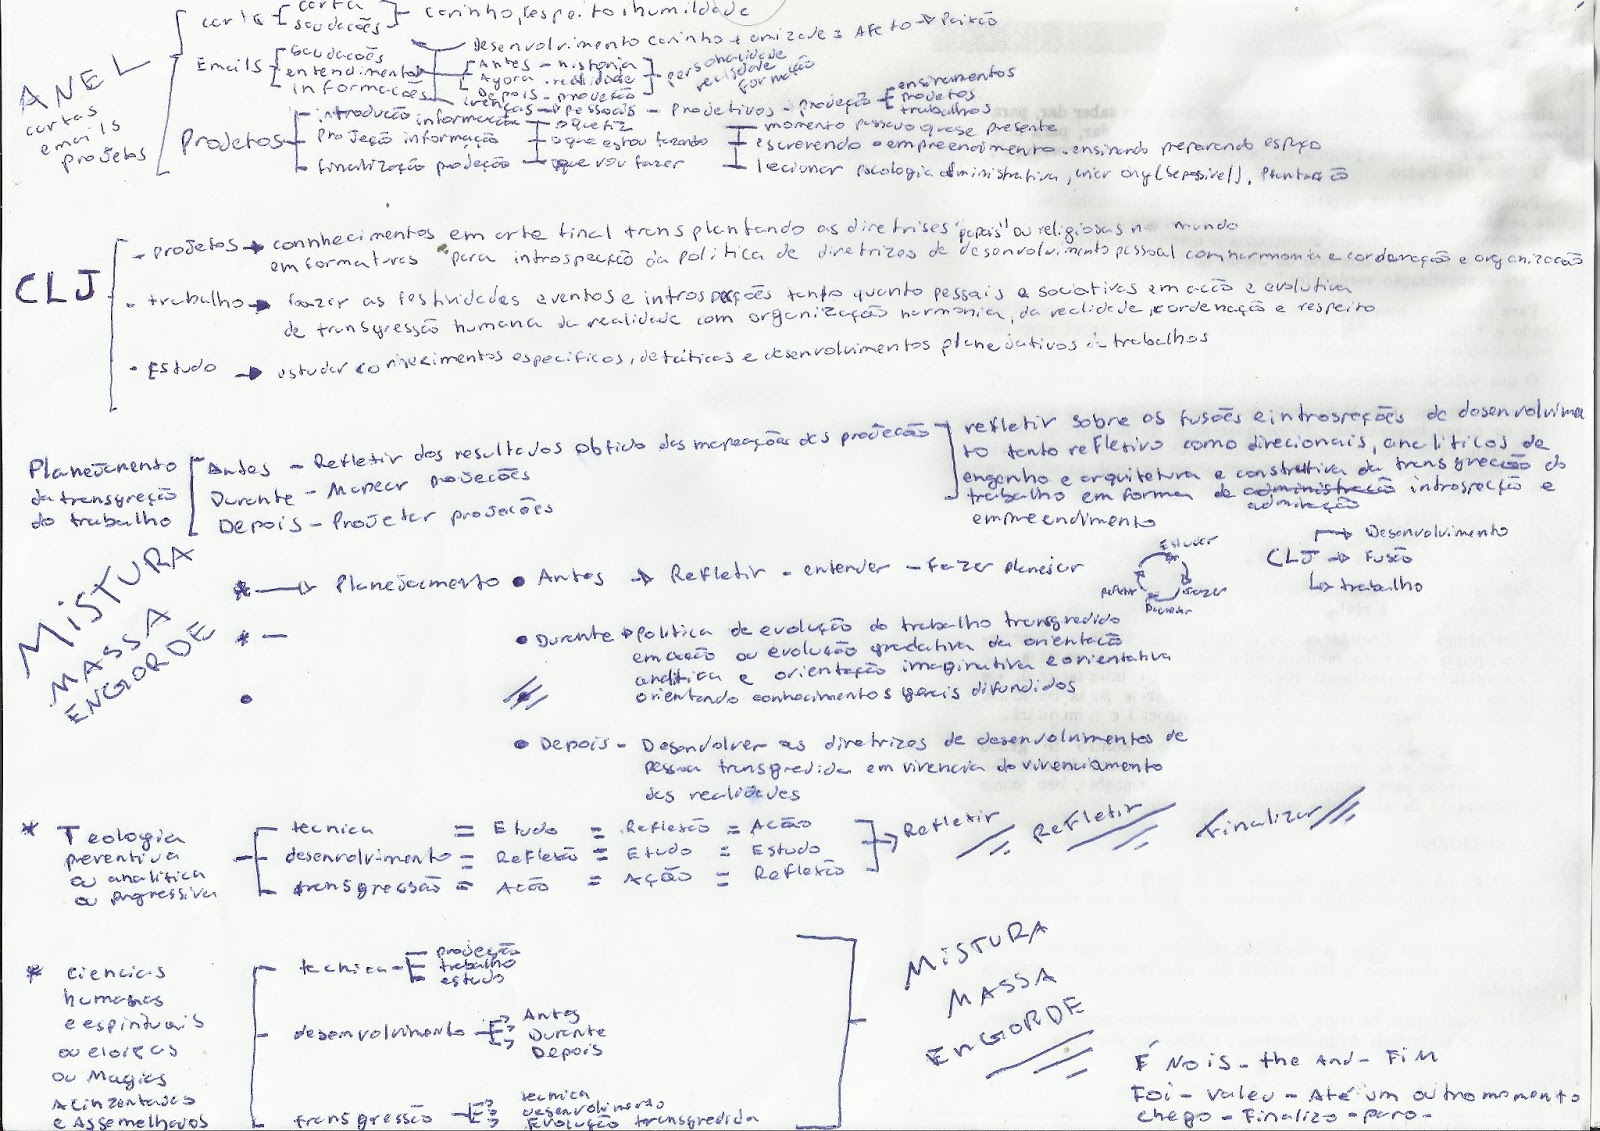 carta
carta saudacões carinho, respeito, humildade
ANEL
cartas
emails
projetos
Emails saudacões
entendimento
informacões
desenvolvimento carinho + amizade = Afeto → Paixão
Antes - historia
Agora - realidade
Depois - projeção
personalidade
realidade
formação
Projetos
introdução informacão
pessoais - projetivos - projeção
ensinamentos
projetos
trabalhos
projeção informação
o que fiz
momento passado quase presente
o que estou fazendo
escrevendo o empreendimento. ensinando preparando espaço
finalização projeção
o que vou fazer
lecionar psicologia administrativa, criar ong (se possivel),
CLJ
- projetos → connhecimentos em arte final transplantando as diretrises "papais" ou religiosas no mundo
em formaturas para introspecção da politica de diretrizes de desenvolvimento pessoal com harmonia e cordenação e organização
- trabalho → fazer as festividades eventos e introspecções tanto quanto pessais e sociativas em acão e evolutiva
de transgressão humana da realidade com organização harmonia, da realidade, cordenação e respeito
- Estudo → estudar conhecimentos especificos, detáticas e desenvolvimentos planejativos de trabalhos
Planejamento
da transgreção
do trabalho
Antes - Refletir dos resultados obtido das mapeações das projeção
Durante - Mapear projecões
Depois - Projetar projecões
refletir sobre os fusões e introspeções de desenvolvimen
to tanto refletivo como direcionais, analíticos de
engenho e arquitetura e construtiva da transgrecão do
trabalho em forma de administracão introspecção e
admiração
empreendimento
MISTURA
MASSA
ENGORDE
* → Planejamento • Antes → Refletir - entender - Fazer planejar
Estudar
Fazer
Projetar
Refletir
CLJ → Desenvolvimento
→ Fusão
→ trabalho
* -
• Durante → politica de evolução do trabalho transgredido
em acão ou evolução gradativa da orientacão
analitica e orientação imaginativa e orientativa
orientando conhecimentos gerais difundidos
• Depois - Desenvolver as diretrizes de desenvolvimentos de
pessoa transgredida em vivencia do vivenciamento
das realidades
* Teologia
preventiva
ou analitica
ou progressiva
tecnica = Etudo = Reflexão = Acão
desenvolvimento = Reflexão = Etudo = Estudo
transgressão = Acão = Ação = Reflexão
Refletir Refletir Finalizar
* ciencias
humanas
e espirituais
ou
ou Magias
Acinzentadas
e Assemelhados
tecnica - projeção
trabalho
estudo
desenvolvimento - Antes
Durante
Depois
transgressão - tecnica
desenvolvimento
Evolução transgredida
MISTURA
MASSA
ENGORDE
É Nois - the And - Fim
Foi - valeu - Até um outro momento
chego - Finalizo - paro -